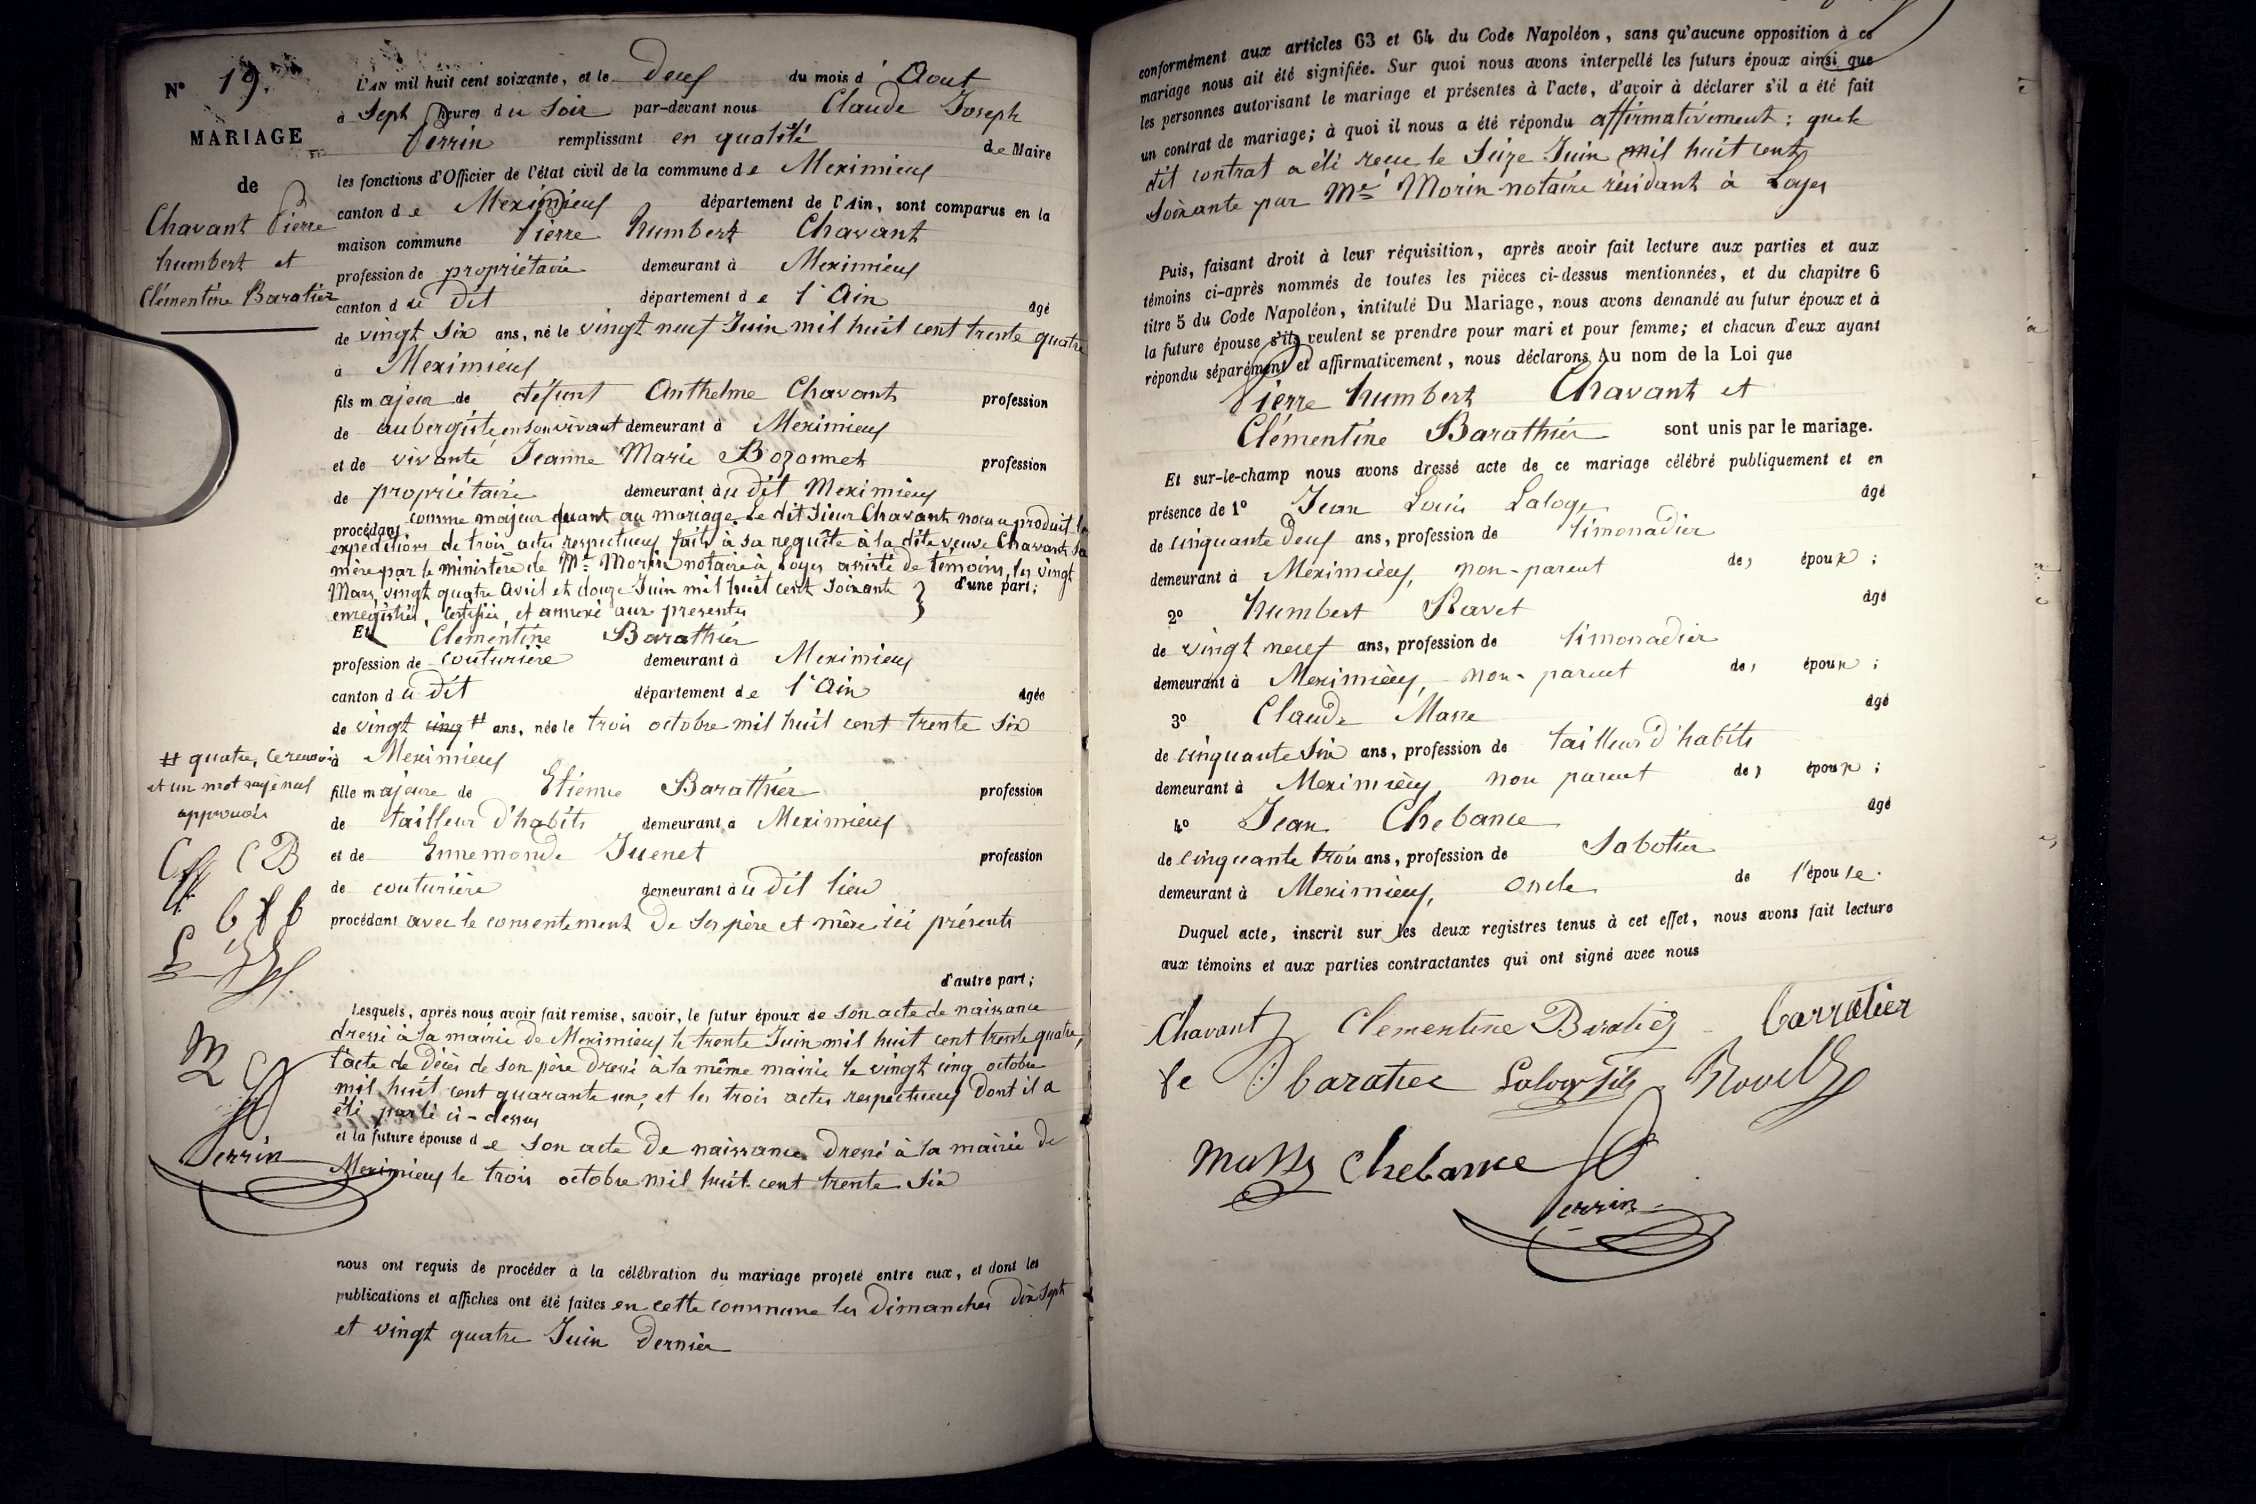 N° 19.
MARIAGE
de
Chavant Pierre
humbert et
Clémentine Baratier
L'AN mil huit cent soixante, et le deux du mois d'Aout
à Sept heures du Soir par-devant nous Claude Joseph
Perrin remplissant en qualité de Maire
les fonctions d'Officier de l'état civil de la commune de Meximieux
canton de Meximieux département de l'Ain, sont comparus en la
maison commune Pierre humbert Chavant
profession de propriétaire demeurant à Meximieux
canton du dit département de l'Ain âgé
de vingt Six ans, né le vingt neuf Juin mil huit cent trente quatre
à Meximieux
fils majeur de défunt Anthelme Chavant profession
de aubergiste en son vivant demeurant à Meximieux
et de vivante Jeanne Marie Bozonnet profession
de propriétaire demeurant au dit Meximieux
procédant comme majeur quant au mariage. Le dit Sieur Chavant nous a produit les
expéditions de trois actes respectueux faits à sa requête à la dite veuve Chavant sa
mère par le ministère de Me Morin notaire à Loyes assisté de témoins, les vingt
Mars, vingt quatre Avril et douze Juin mil huit cent Soixante d'une part;
enregistrés, certifiés, et annexé aux presentes
Et Clémentine Barathier
profession de couturière demeurant à Meximieux
canton du dit département de l'Ain âgée
de vingt cinq # ans, née le trois octobre mil huit cent trente Six
à Meximieux
# quatre, ce renvoi
et un mot rayé nul
approuvés
fille majeure de Etienne Barathier profession
de tailleur d'habits demeurant à Meximieux
et de Ennemonde Juenet profession
de couturière demeurant au dit lieu
procédant avec le consentement de ses père et mère ici présents
C B
d'autre part;
Lesquels, après nous avoir fait remise, savoir, le futur époux de son acte de naissance
dressé à la mairie de Meximieux le trente Juin mil huit cent trente quatre,
l'acte de décès de son père dressé à la même mairie le vingt cinq octobre
mil huit cent quarante un, et les trois actes respectueux dont il a
été parlé ci-dessus
et la future épouse de son acte de naissance dressé à la mairie de
Meximieux le trois octobre mil huit cent trente Six
Perrin
nous ont requis de procéder à la célébration du mariage projeté entre eux, et dont les
publications et affiches ont été faites en cette commune les Dimanches dix Sept
et vingt quatre Juin dernier
conformément aux articles 63 et 64 du Code Napoléon, sans qu'aucune opposition à ce
mariage nous ait été signifiée. Sur quoi nous avons interpellé les futurs époux ainsi que
les personnes autorisant le mariage et présentes à l'acte, d'avoir à déclarer s'il a été fait
un contrat de mariage; à quoi il nous a été répondu affirmativement: que le
dit contrat a été reçu le Seize Juin mil huit cent
Soixante par Me Morin notaire résidant à Loyes
Puis, faisant droit à leur réquisition, après avoir fait lecture aux parties et aux
témoins ci-après nommés de toutes les pièces ci-dessus mentionnées, et du chapitre 6
titre 5 du Code Napoléon, intitulé Du Mariage, nous avons demandé au futur époux et à
la future épouse s'ils veulent se prendre pour mari et pour femme; et chacun d'eux ayant
répondu séparément et affirmativement, nous déclarons Au nom de la Loi que
Pierre humbert Chavant et
Clémentine Barathier sont unis par le mariage.
Et sur-le-champ nous avons dressé acte de ce mariage célébré publiquement et en
présence de 1° Jean Louis Laloge âgé
de cinquante deux ans, profession de limonadier
demeurant à Meximieux, non-parent des époux;
2° humbert Ravet âgé
de vingt neuf ans, profession de limonadier
demeurant à Meximieux, non-parent des époux;
3° Claude Masse âgé
de cinquante Six ans, profession de tailleur d'habits
demeurant à Meximieux non parent des époux;
4° Jean Chebance âgé
de cinquante trois ans, profession de Sabotier
demeurant à Meximieux, oncle de l'épouse.
Duquel acte, inscrit sur les deux registres tenus à cet effet, nous avons fait lecture
aux témoins et aux parties contractantes qui ont signé avec nous
Chavant Clementine Baratier barratier
fe baratier Laloge fils
Masse Chebance
Perrin